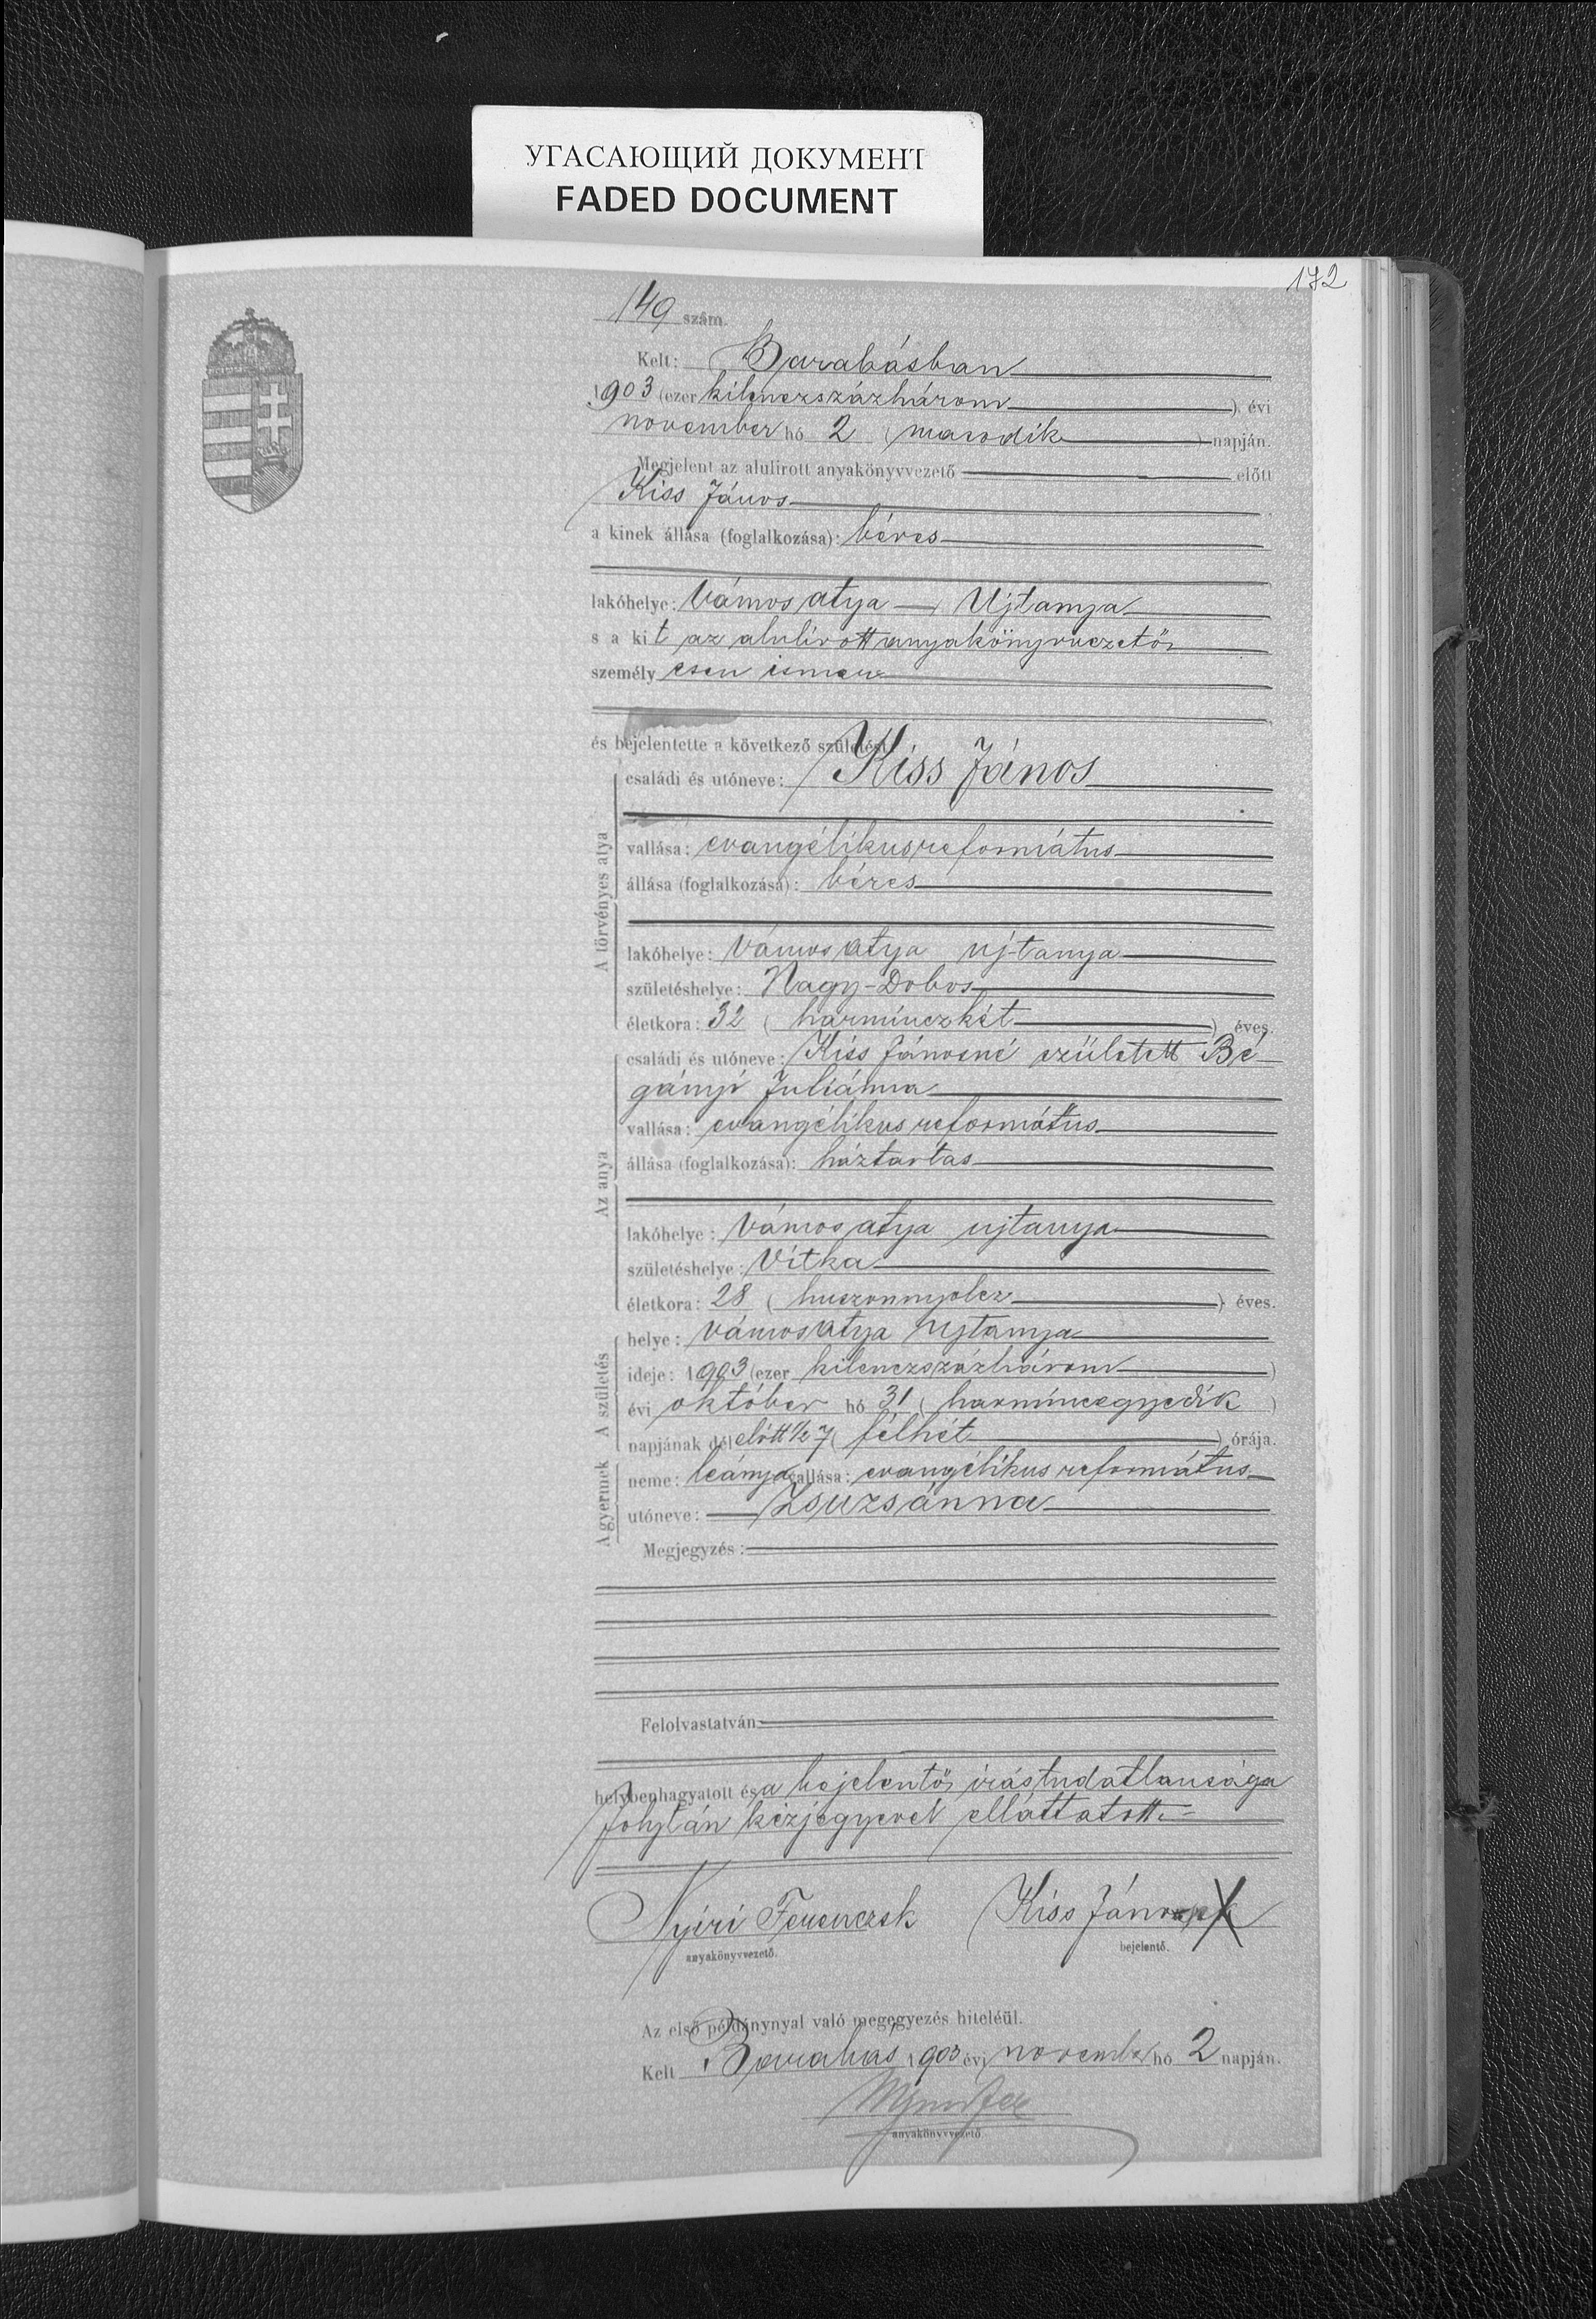 УГАСАЮЩИЙ ДОКУМЕНТ
FADED DOCUMENT
172
149 szám.
Kelt: Barabásban
1903 (ezer kilenczszázhárom ) évi
november hó 2 (masodik ) napján.
Megjelent az alulirott anyakönyvvezető előtt
Kiss János
a kinek állása (foglalkozása): béres
lakóhelye: Vámos atya — Ujtanya
s a kit az alulirott anyakönyvvezető
személyesen ismer
és bejelentette a következő születést:
A törvényes atya
családi és utóneve: Kiss János
vallása: evangélikus református
állása (foglalkozása): béres
lakóhelye: Vámos atya uj-tanya
születéshelye: Nagy-Dobos
életkora: 32 ( harminczkét ) éves.
Az anya
családi és utóneve: Kiss Jánosné született Bé-
gányi Juliánna
vallása: evangélikus református
állása (foglalkozása): háztartas
lakóhelye: Vámos atya ujtanya
születéshelye: Vitka
életkora: 28 ( huszonnyolcz ) éves.
A születés
helye: Vámos atya Ujtanya
ideje: 1903 (ezer kilenczszázhárom )
évi október hó 31 ( harminczegyedik )
napjának délelőtt 1/2 7 ( félhét ) órája.
A gyermek
neme: leánya vallása: evangélikus református
utóneve: Zsuzsánna
Megjegyzés:
Felolvastatván
helybenhagyatott és a bejelentő irástudatlansága
folytán kézjegyevel elláttatott.
Nyiri Ferenczsk Kiss János X
anyakönyvvezető. bejelentő.
Az első példánynyal való megegyezés hiteléül.
Kelt Barabás 1903 évi november hó 2 napján.
anyakönyvvezető